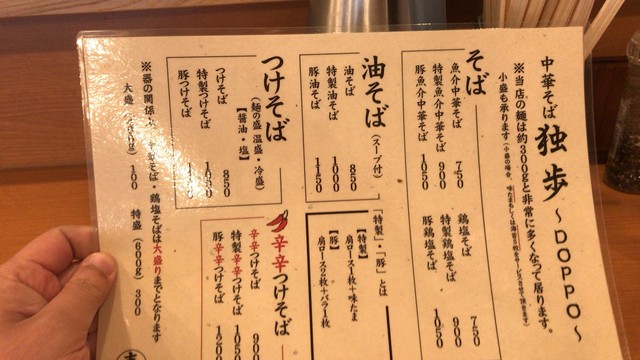 中華そば 独歩 ～DOPPO～
※当店の麺は約300gと非常に多くなって居ります。
小盛も承ります
そば
魚介中華そば 750
特製魚介中華そば 900
豚魚介中華そば 1050
鶏塩そば 750
特製鶏塩そば 900
豚鶏塩そば 1050
油そば (スープ付)
油そば 850
特製油そば 1000
豚油そば 1150
「特製」・「豚」とは
【特製】
肩ロース1枚+味たま
【豚】
肩ロース2枚+バラ1枚
つけそば
(麺の盛 温盛・冷盛)
【醤油・塩】
つけそば 850
特製つけそば
豚つけそば
辛辛つけそば
辛辛つけそば 900
特製辛辛つけそば 1050
豚辛辛つけそば 1200
※器の関係
鶏塩そばは大盛りまでとなります
大盛 100
特盛 (600g) 300